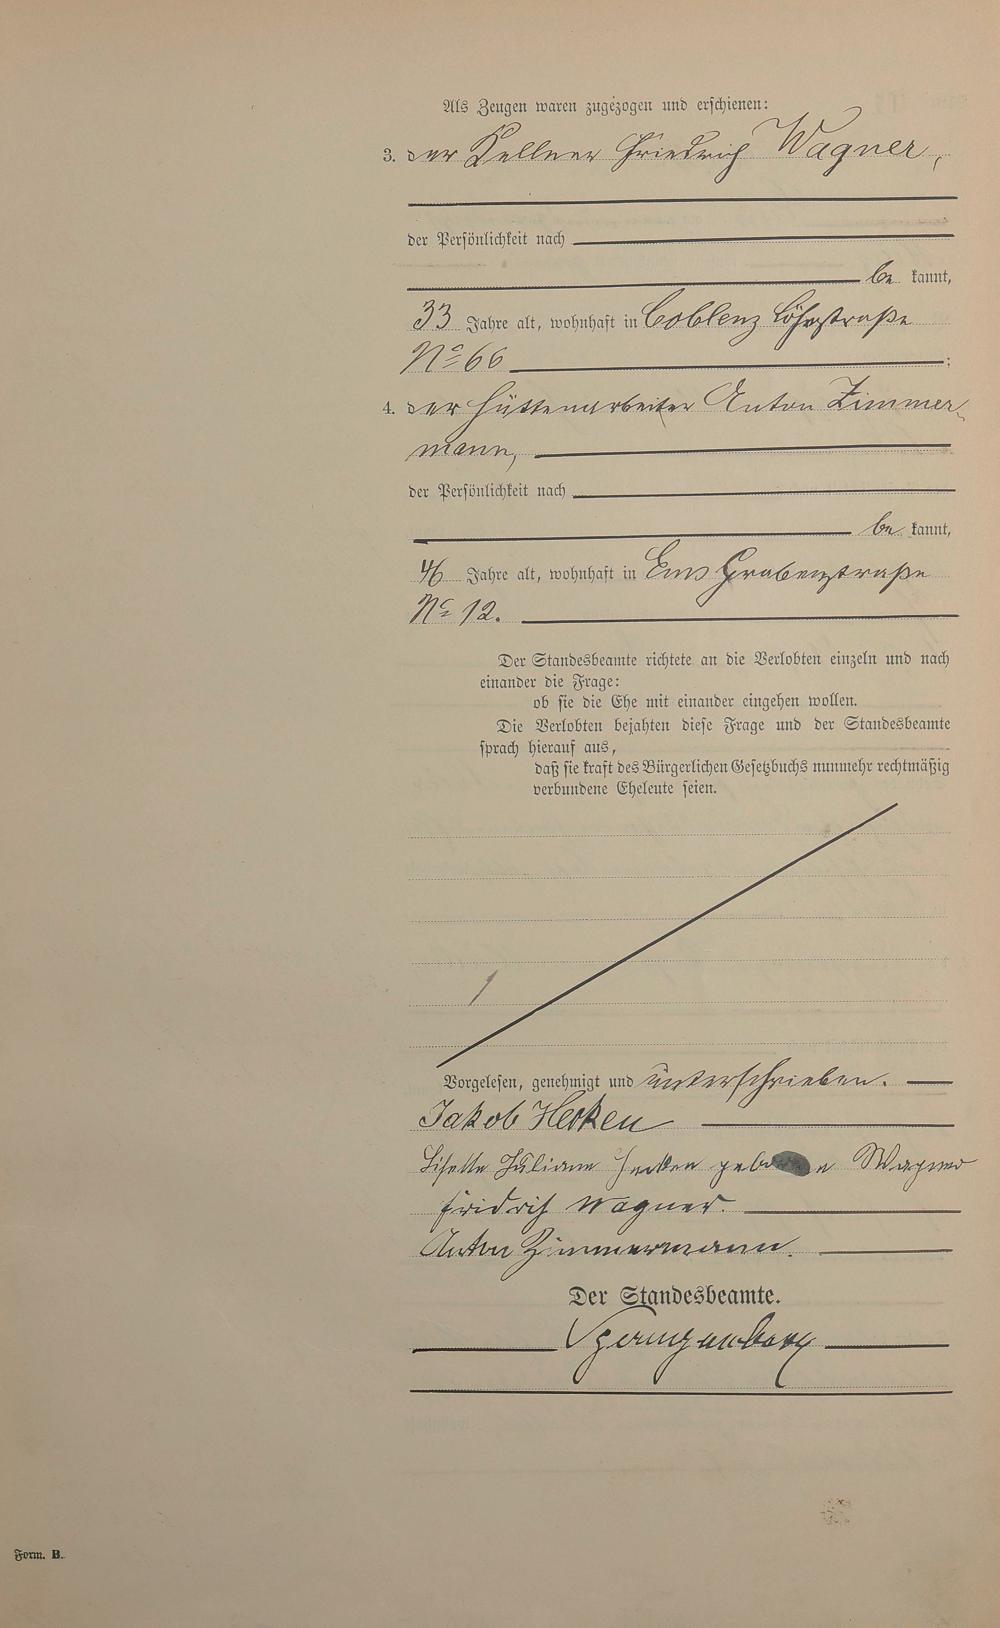 Als Zeugen waren zugezogen und erschienen:
3. der Kellner Friedrich Wagner,
der Persönlichkeit nach
be kannt,
33 Jahre alt, wohnhaft in Coblenz Löhrstraße
No 66 ;
4. der Hüttenarbeiter Anton Zimmer-
mann,
der Persönlichkeit nach
be kannt,
46 Jahre alt, wohnhaft in Ems Grabenstraße
No 12.
Der Standesbeamte richtete an die Verlobten einzeln und nach
einander die Frage:
ob sie die Ehe mit einander eingehen wollen.
Die Verlobten bejahten diese Frage und der Standesbeamte
sprach hierauf aus,
daß sie kraft des Bürgerlichen Gesetzbuchs nunmehr rechtmäßig
verbundene Eheleute seien.
Vorgelesen, genehmigt und unterschrieben.
Jakob Herken
Lisette Juliane Herken geborene Wagner
Fridrich Wagner.
Anton Zimmermann.
Der Standesbeamte.
Form. B.